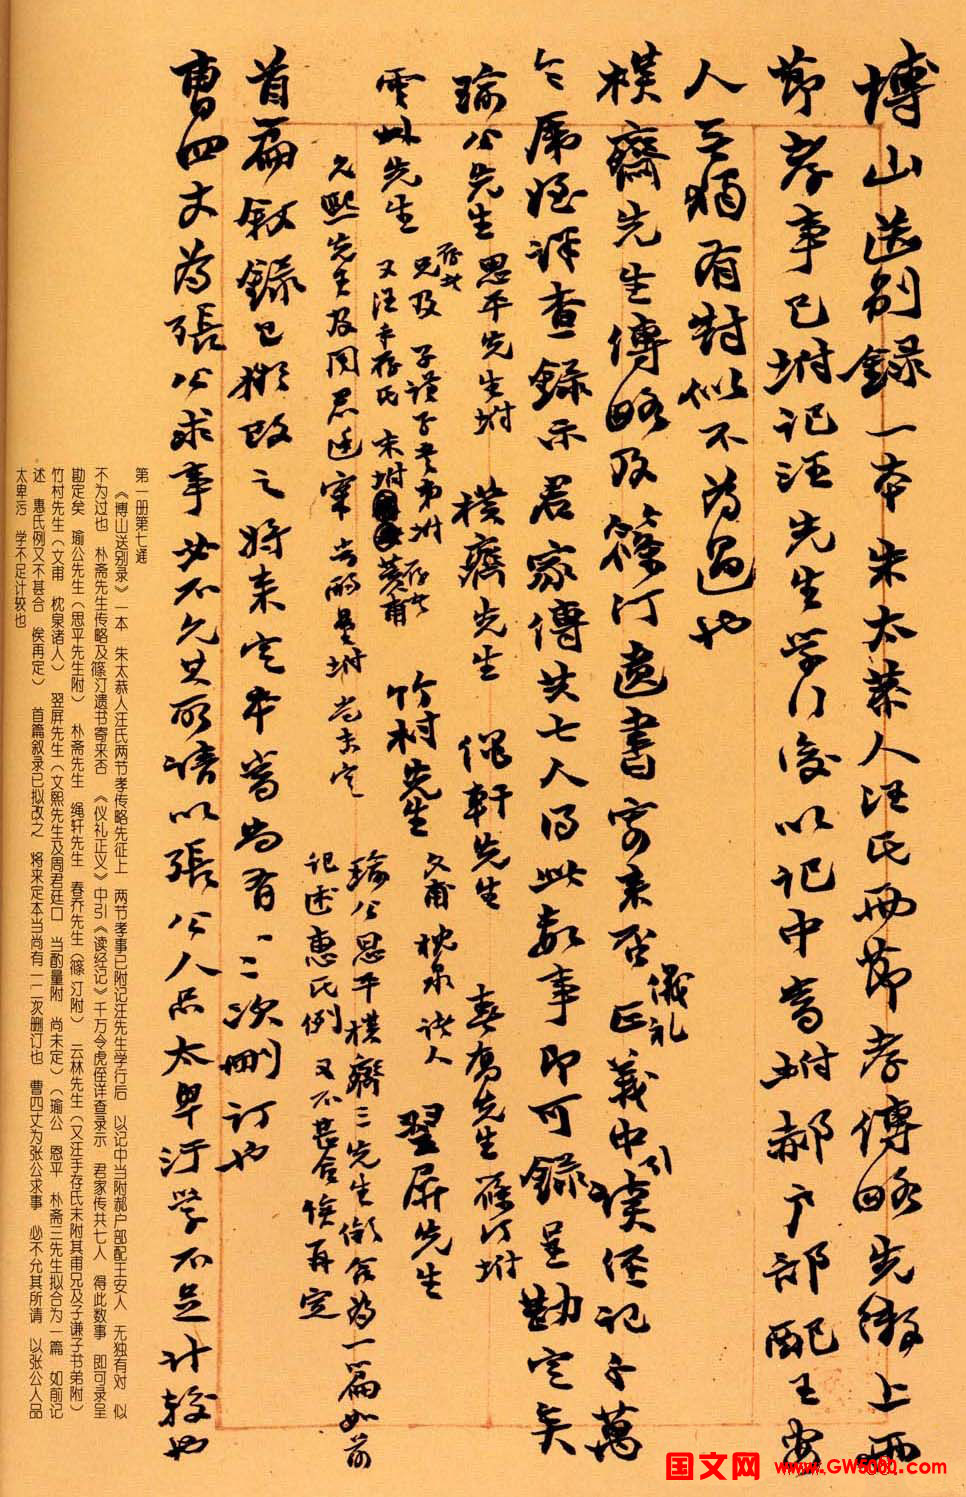 搏山送別錄一本朱太恭人汪氏两節孝傳略先徵上两
節孝事已坿記汪先生学行後以記中當坿郝户部配王安
人無獨有對似不為過也
樸齋先生傳略及篠汀遺書寄来否儀礼正義中引讀經記千萬
令虎姪详查錄示君家傳共七人得此数事即可錄呈勘定矣
瑜公先生思平先生坿 樸齋先生 繩軒先生 春喬先生篠汀坿
雲林先生
竹村先生文甫枕泉諸人 翌屏先生
文熙先生及周君廷 當酌量坿尚未定 瑜公思平樸齋三先生擬合為一篇如前
記述惠氏例又不甚合俟再定
首篇叙錄已擬改之将来定本當尚有一二次刪訂也
曹四丈為張公求事必不允其所請以張公人品太卑汙学不足计較也
第一册第七通
《搏山送别录》一本 朱太恭人汪氏两节孝传略先征上 两节孝事已附记汪先生学行后 以记中当附郝户部配王安人 无独有对 似
不为过也 朴斋先生传略及篠汀遗书寄来否 《仪礼正义》中引《读经记》千万令虎侄详查录示 君家传共七人 得此数事 即可录呈
勘定矣 瑜公先生（思平先生附） 朴斋先生 绳轩先生 春乔先生（篠汀附） 云林先生（又汪手存氏末附其甫兄及子谦子书弟附）
竹村先生（文甫 枕泉诸人） 翌屏先生（文熙先生及周君廷口 当酌量附 尚未定）（瑜公 恩平 朴斋三先生拟合为一篇 如前记
述 惠氏例又不甚合 俟再定） 首篇叙录已拟改之 将来定本当尚有一二次删订也 曹四丈为张公求事 必不允其所请 以张公人品
太卑污 学不足计较也
国文网 www.GW5000.com